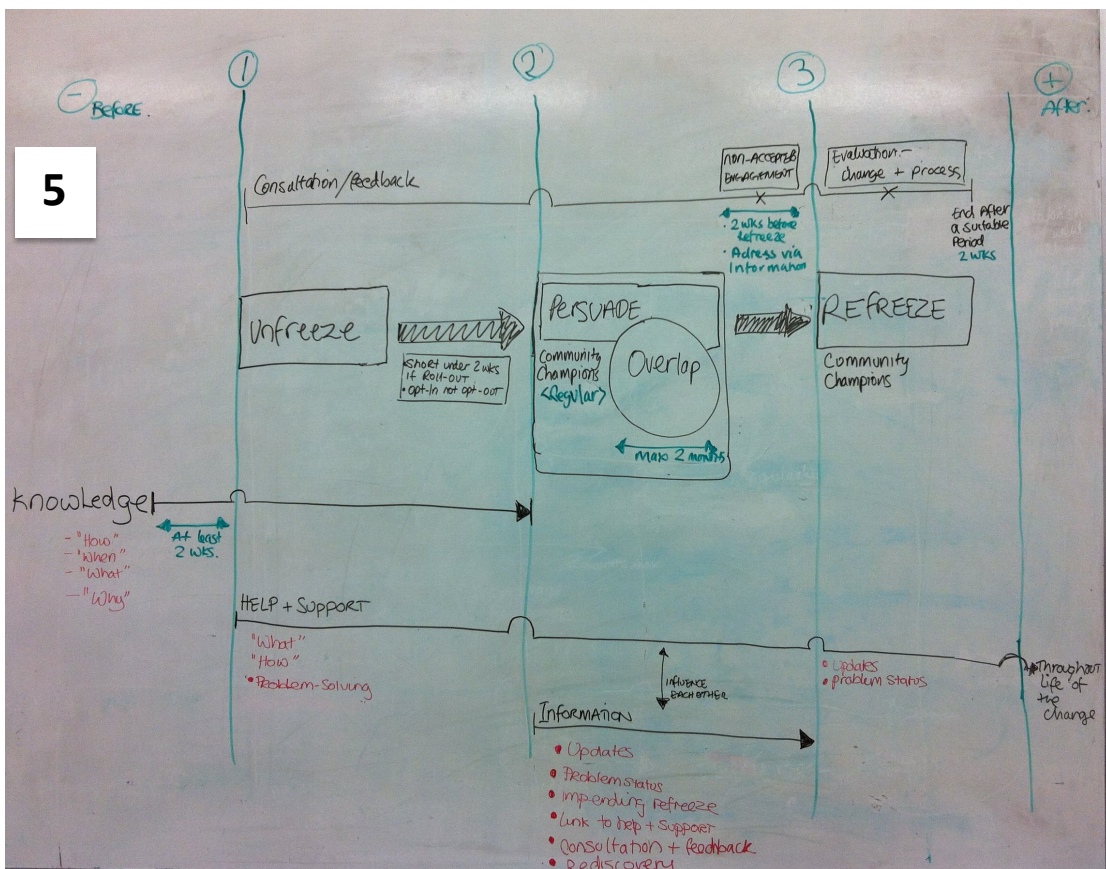 1
2
3
-
BEFORE.
+
After:
5
Consultation/feedback
NON-ACCEPTED
ENGAGEMENT
Evaluation:-
change + process
X
X
• 2 wks before
refreeze
• Adress via
Information
End After
a suitable
Period
2 wks
Unfreeze
• Short under 2 wks
if ROLL-OUT
• opt-in not opt-out
PERSUADE
Community
Champions
<Regular>
Overlap
Max 2 months
REFREEZE
Community
Champions
Knowledge
- "How"
- "When"
- "What"
- "Why"
At least
2 wks.
HELP + SUPPORT
"What"
"How"
• Problem-Solving
INFLUENCE
EACH OTHER
• Updates
• problem status
Throughout
Life of
the
change
INFORMATION
• Updates
• Problem status
• Impending refreeze
• Link to help + Support
• Consultation + feedback
• Rediscovery